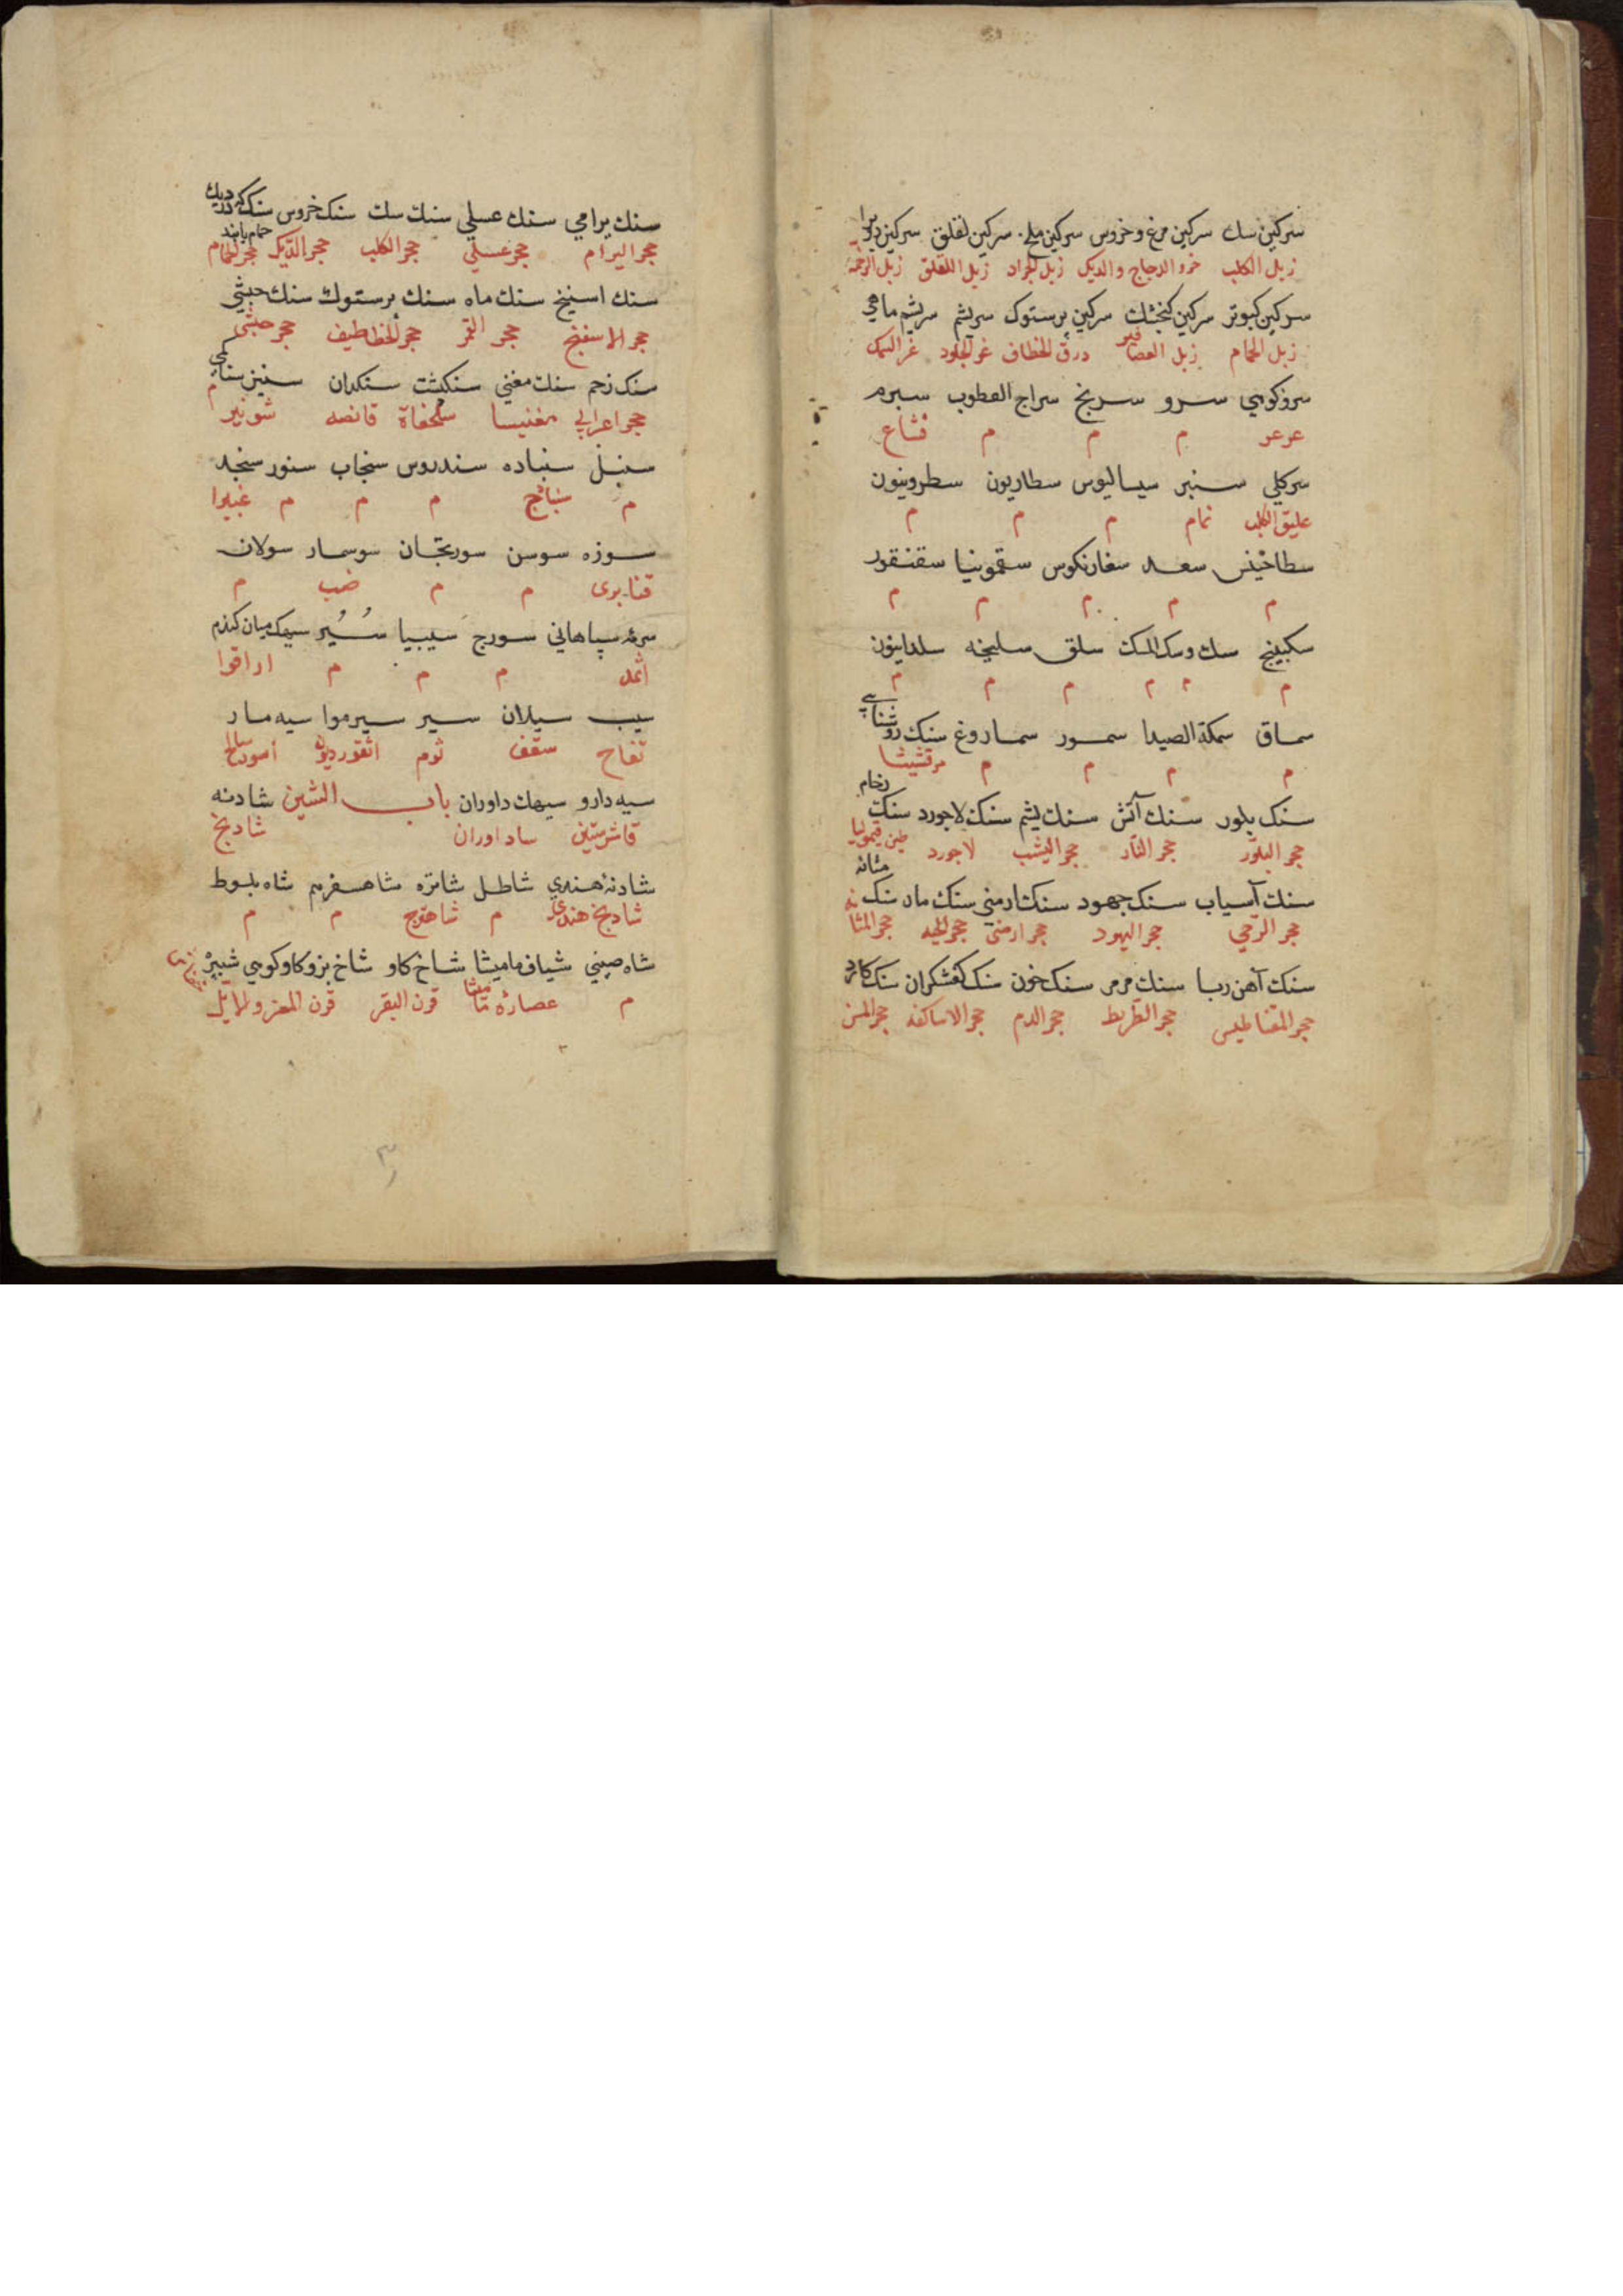 سرکین سك سرکین مرغ و خروس سرکین ملخ سرکین لقلق سرکین
زبل الکلب خرو الدجاج والدیك زبل الجراد زبل اللقلق زبل الرخمة
سرکین کبوتر سرکین کنجشك سرکین پرستوك سریشم سریشم ماهی
زبل الحمام زبل العصافیر درق الخطاف غر الجلود غر السمك
سروکوهی سرو سرنج سراج القطرب سبرم
عرعر م م م فشاع
سرکلی سنبر سیسالیوس سطاریون سطرونیون
علیق الکلب نمام م م م
سطاخیس سعد سغارنکوس سقمونیا سقنقور
م م م م م
سکبینج سك وسك المسك سلق سلیخه سلدانیون
م م م م م م
سماق سمکة الصیدا سمور سماروغ سنك روشنایی
م م م م مرقشیشا
سنك بلور سنك آتش سنك یشم سنك لاجورد سنك رخام
حجر البلور حجر النار حجر الیشب لاجورد طین قیمولیا
سنك آسیاب سنك جهود سنك ارمنی سنك مار سنك مثانه
حجر الرحی حجر الیهود حجر ارمنی حجر الحیه حجر المثانه
سنك آهن ربا سنك مرمر سنك خون سنك کفشکران سنك کارد
حجر المقناطیس حجر القریط حجر الدم حجر الاساکفه حجر المسن
سنك یرامی سنك عسلی سنك سك سنك خروس سنك
حجر الیرام حجر عسلی حجر الکلب حجر الدیك حجر الحمام
سنك اسنیخ سنك ماه سنك پرستوك سنك حبشی
حجر الاسفنج حجر القمر حجر الخطاطیف حجر حبشی
سنك زخم سنك مغنی سنکپشت سنکدان
حجر اعرابی مغنیسا سلحفاة قانصه شونیز
سنبل سنباده سندروس سنجاب سنور سنجد
م سنبادج م م م غبیرا
سوزه سوسن سورنجان سوسمار سولان
قنابری م م ضب م
سرمه سپاهانی سورج سیبیا سُیُر سیهك میان کندم
اثمد م م م اراقوا
سیب سیلان سیر سیرموا سیه مار
تفاح سقف ثوم اثقوردیون اسود سالخ
سیه دارو سیهك داوران باب الشین شادنه
قاشرستین ساداوران شادنج
شادنهٔ هندی شاطل شاتره شاهسفرم شاه بلوط
شادنج هندی م شاهترج م م
شاه صینی شیاف مامیشا شاخ کاو شاخ بزوکاوکوهی
م عصارهٔ مامیشا قرن البقر قرن المعز والایل